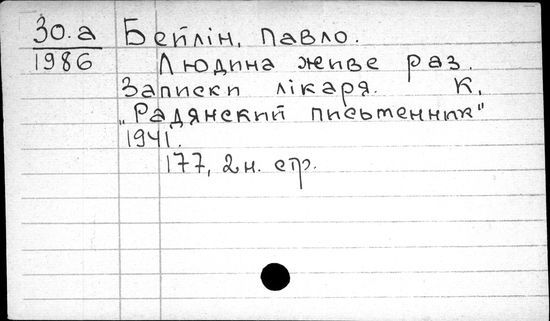 30.а
1986
Бейлін, Павло.
Людина живе раз.
Записки лікаря. К.
„Радянский письменник"
1941.
177, 2 н. стр.